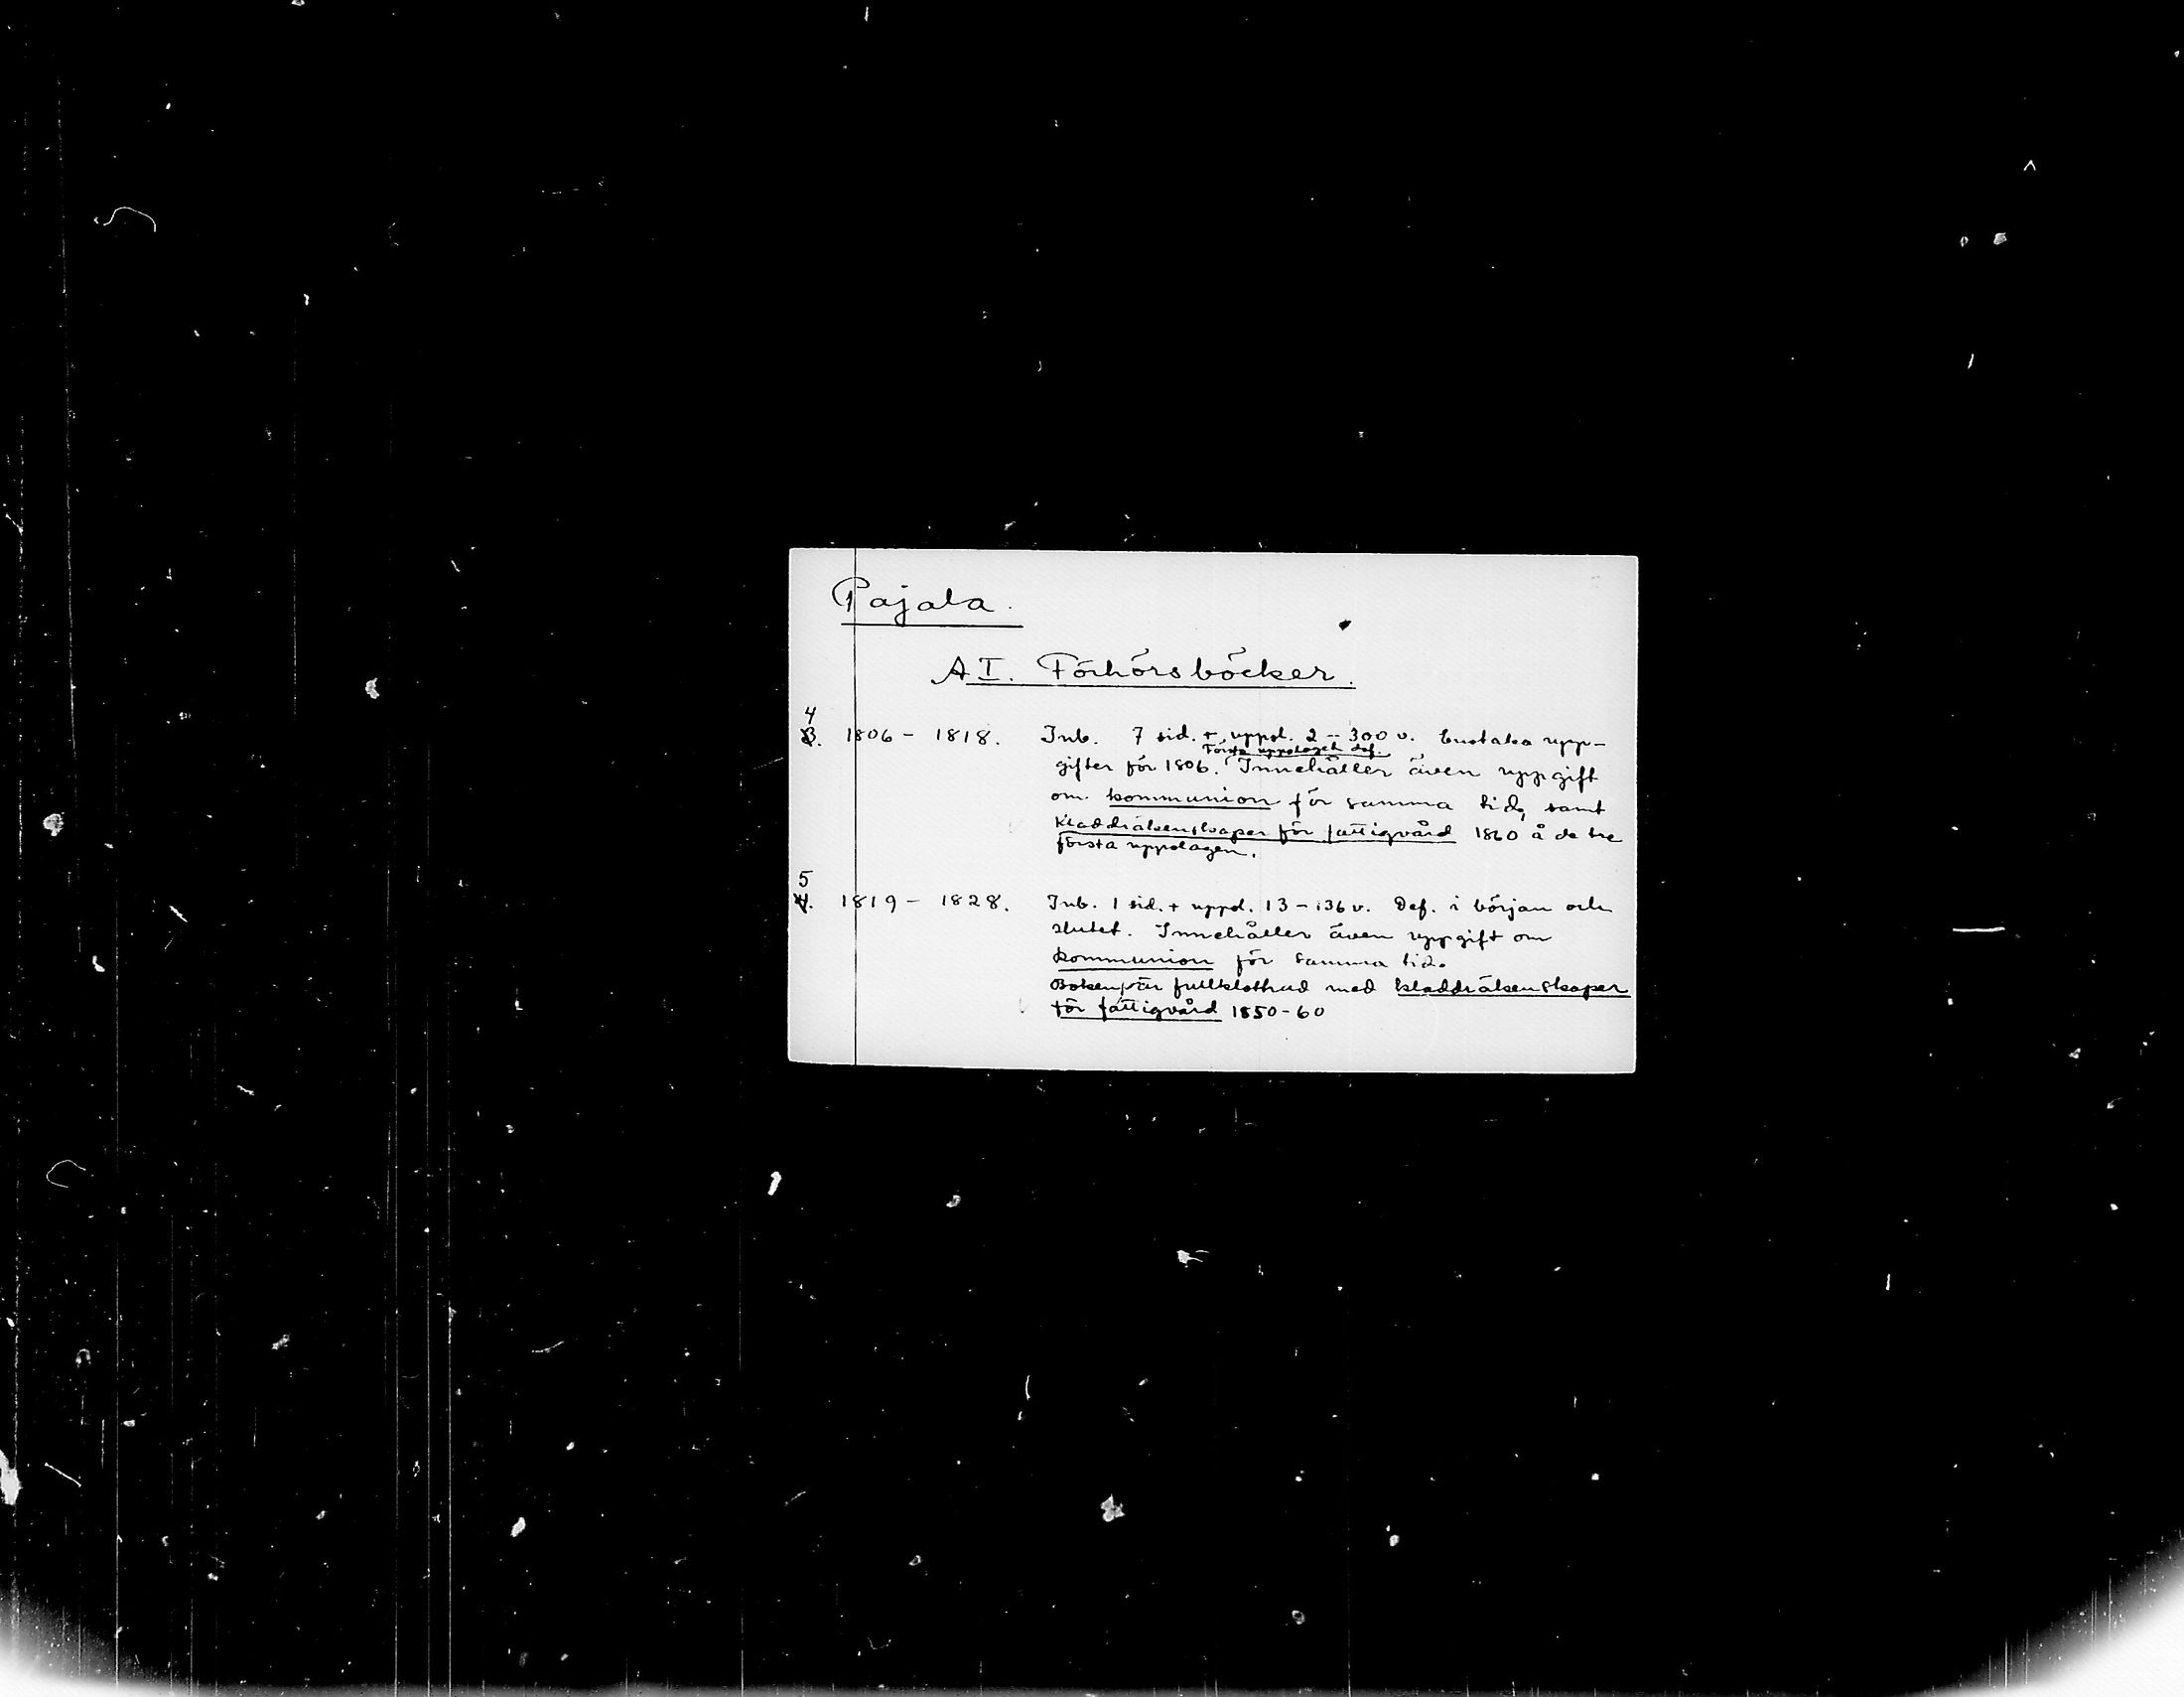 Pajala.
A I. Förhörsböcker.
4
3. 1806 - 1818. Inb. 7 sid. + uppsl. 2 - 300 v. Enstaka upp-
Första uppslaget def.
gifter för 1806. Innehåller även uppgift
om kommunion för samma tid, samt
kladdräkenskaper för fattigvård 1860 å de tre
första uppslagen.
5
4. 1819 - 1828. Inb. 1 sid. + uppsl. 13 - 136 v. Def. i början och
slutet. Innehåller även uppgift om
kommunion för samma tid.
Boken är fullklottrad med kladdräkenskaper
för fattigvård 1850-60